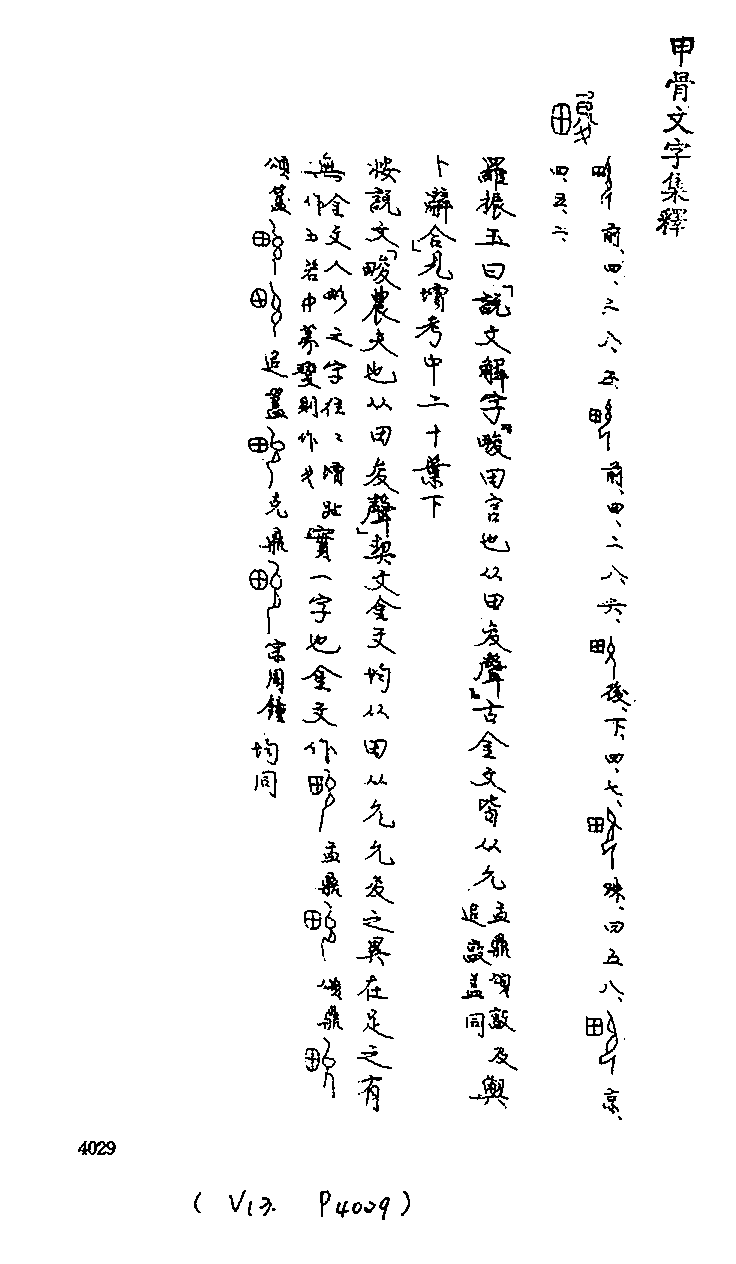 甲骨文字集釋
畯
前、四、二八、五、前、四、二八、六、後、下、四、七、珠、四五八、京、
四、五、二
羅振玉曰「說文解字『畯田官也从田夋聲』古金文皆从允盂鼎頌敦及追敦蓋同與
卜辭合」見增考中二十葉下
按說文「畯農夫也从田夋聲」契文金文均从田从允允夋之異在足之有
無金文人形之字往往增趾實一字也金文作盂鼎頌鼎
頌簋追簋克鼎宗周鐘均同
4029
(V13. P4029)